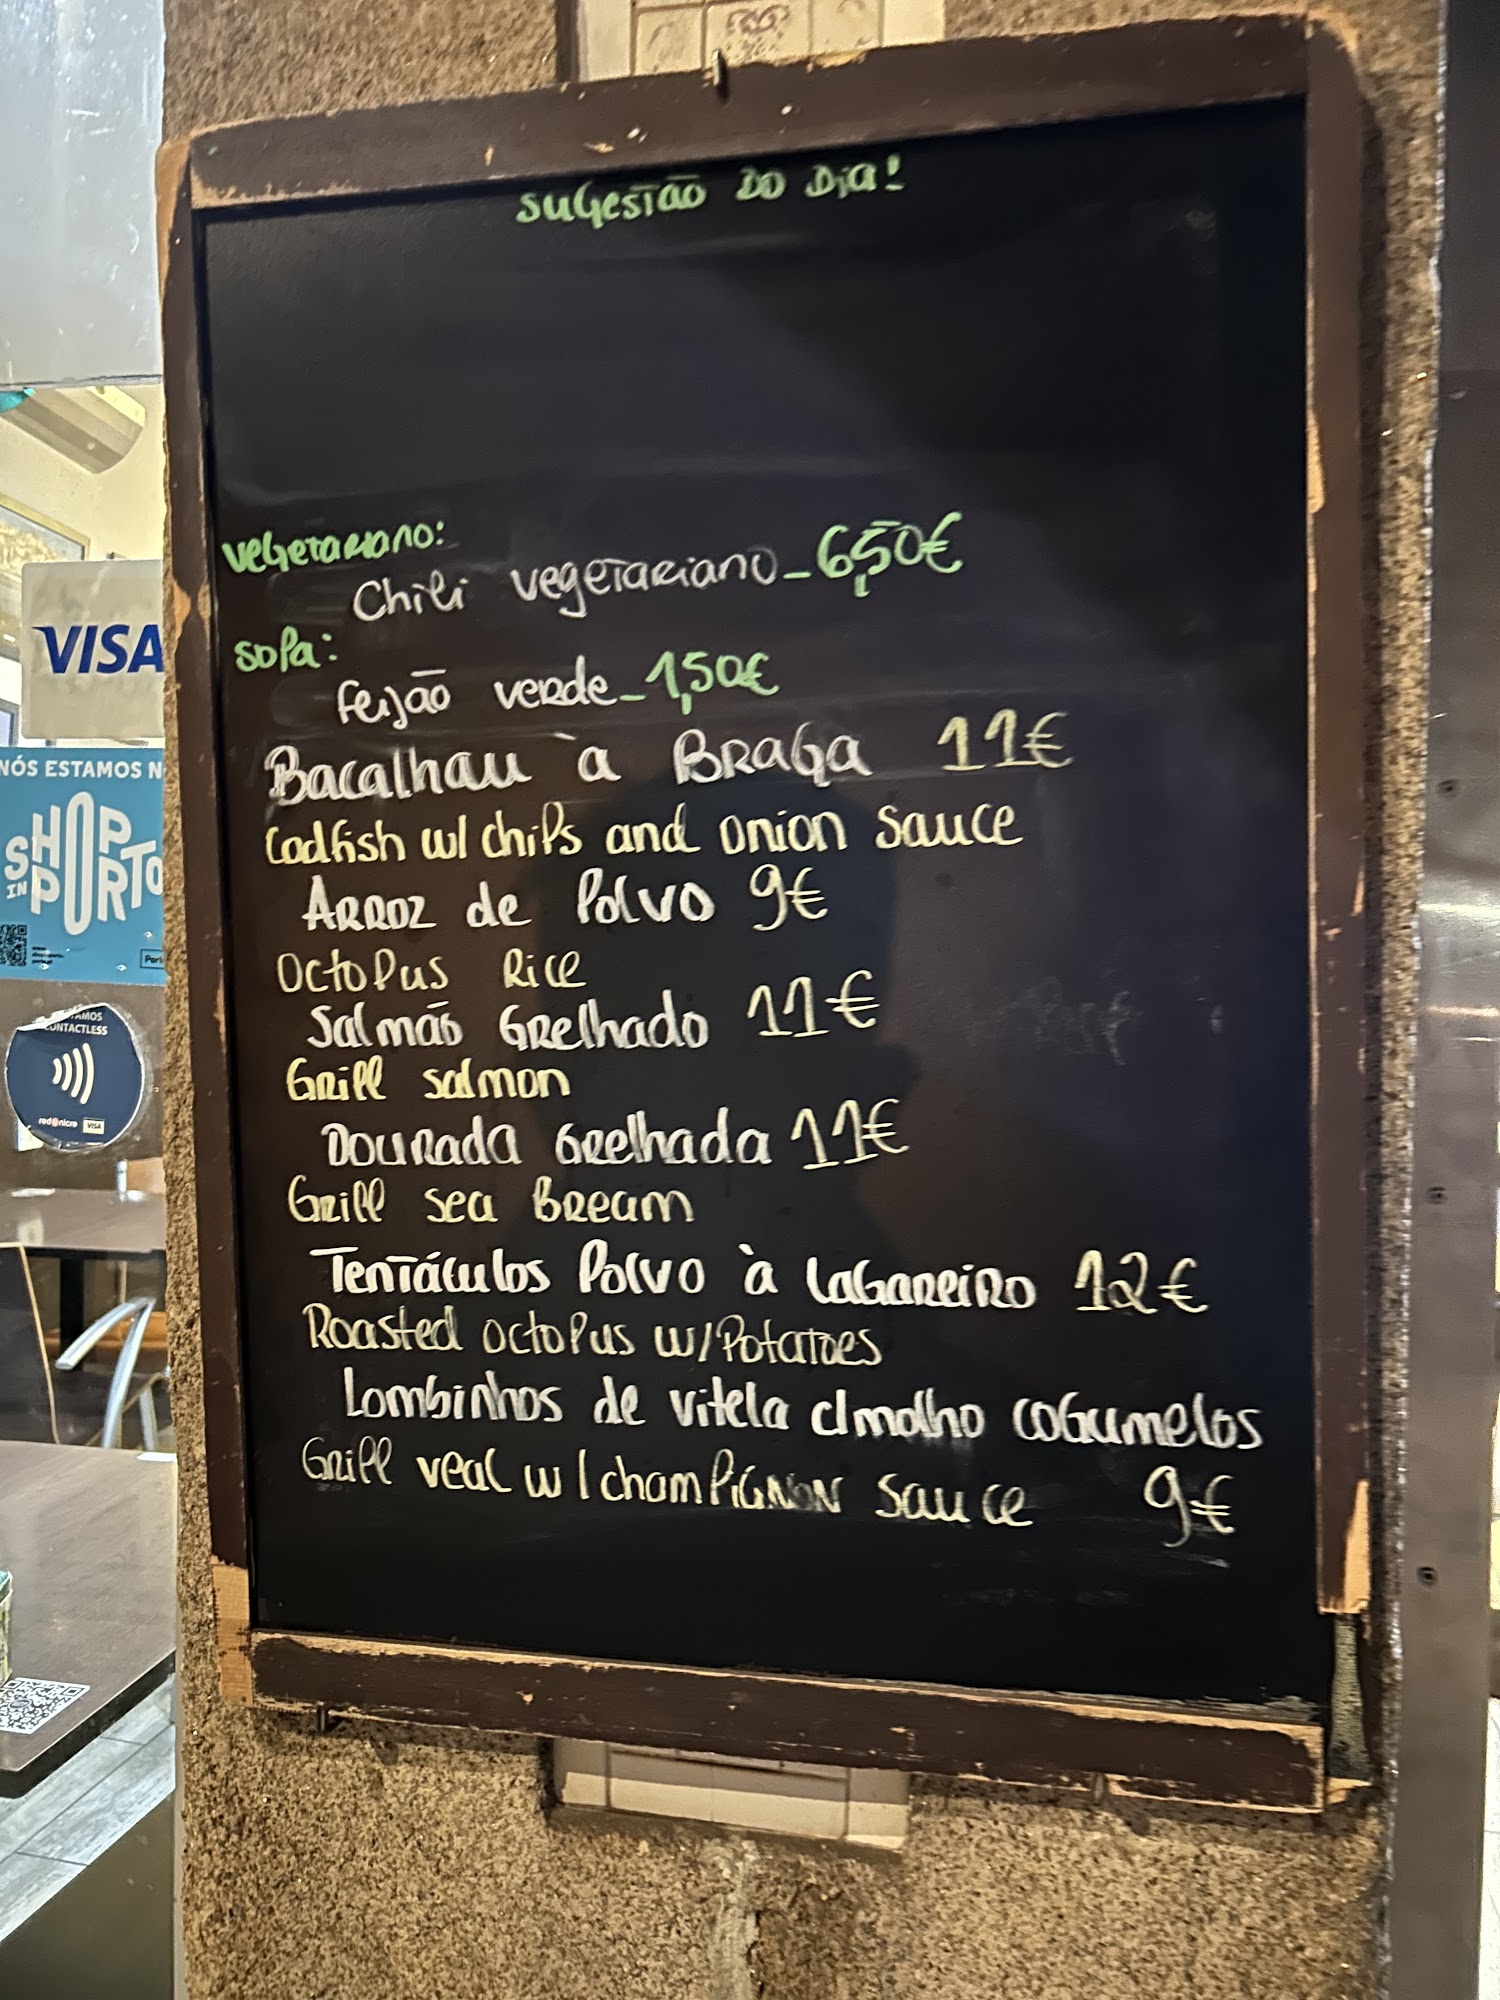 Sugestão do Dia!
Vegetariano:
Chili vegetariano_6,50€
Sopa:
Feijão verde_1,50€
Bacalhau à Braga 11€
Codfish w/ chips and onion sauce
Arroz de Polvo 9€
Octopus Rice
Salmão Grelhado 11€
Grill salmon
Dourada Grelhada 11€
Grill sea Bream
Tentáculos Polvo à Lagareiro 12€
Roasted octopus w/Potatoes
Lombinhos de vitela c/molho cogumelos
Grill veal w/champignon sauce 9€
VISA
NÓS ESTAMOS N
SHOP
IN PORTO
CONTACTLESS
redunicre VISA